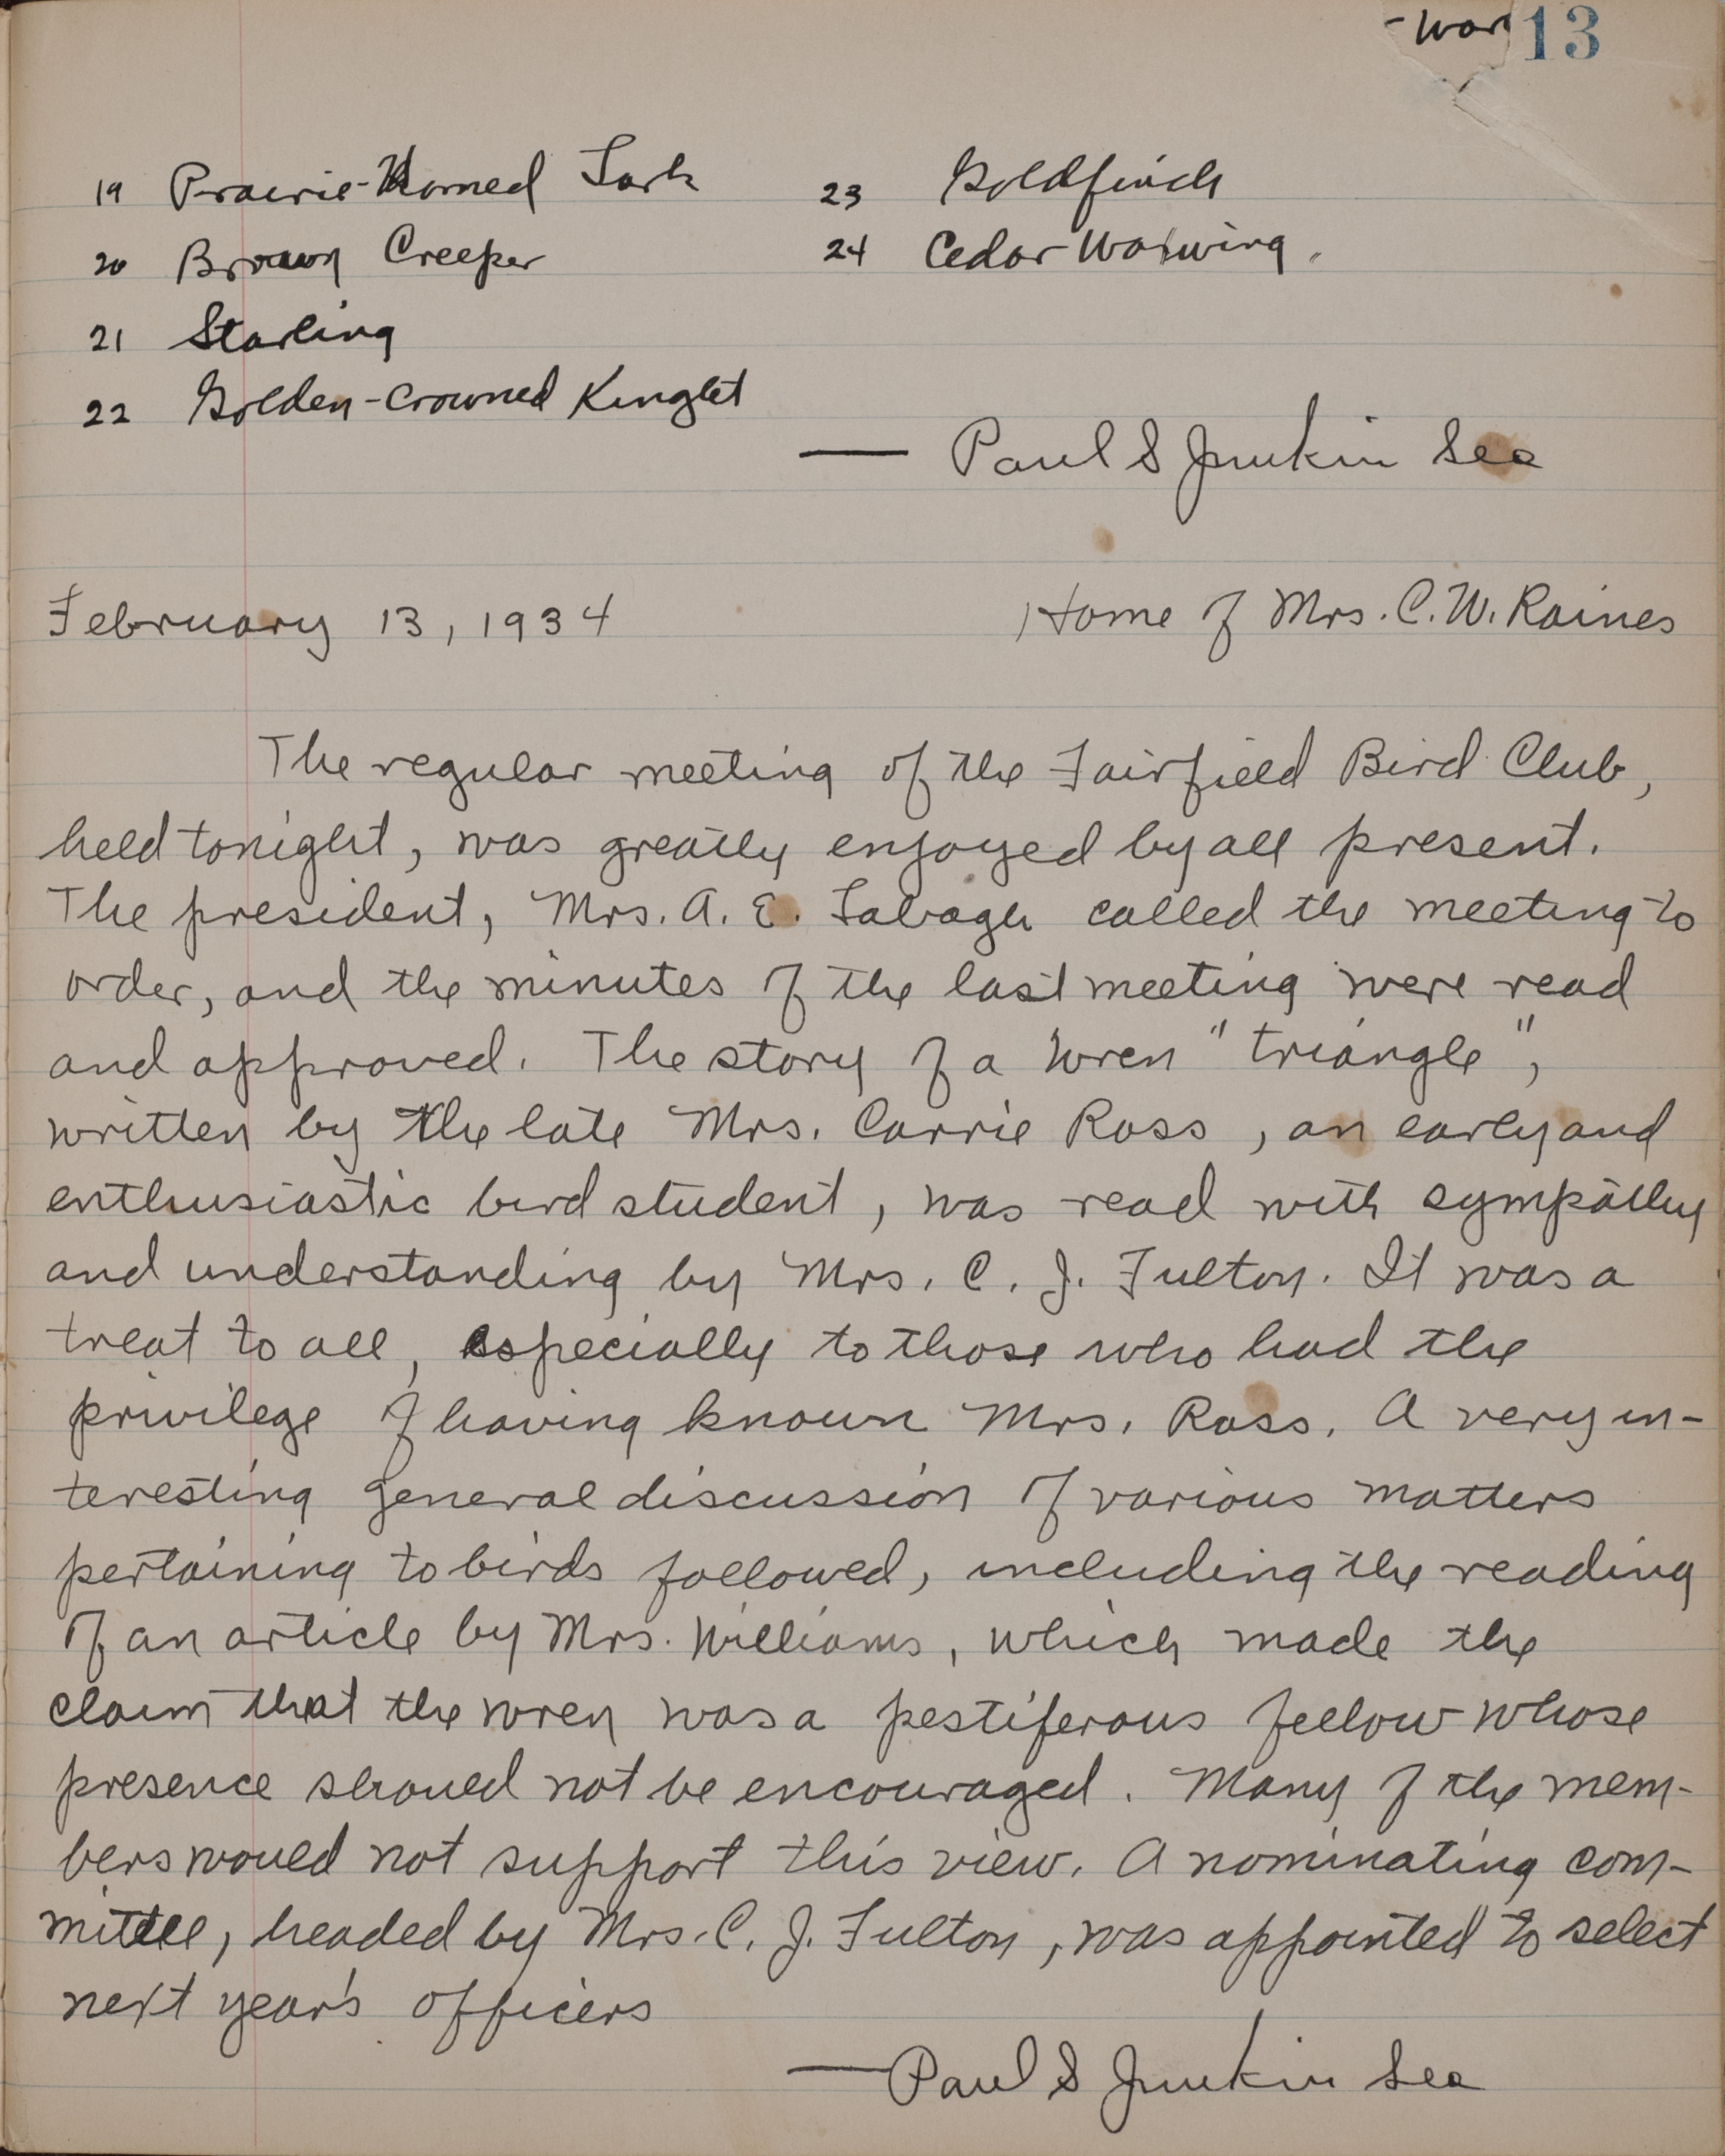 13
19 Prairie-Horned Lark
20 Brown Creeper
21 Starling
22 Golden-crowned Kinglet
23 Goldfinch
24 Cedar Waxwing.
— Paul S Junkin Sec
February 13, 1934
Home of Mrs. C. W. Raines
The regular meeting of the Fairfield Bird Club,
held tonight, was greatly enjoyed by all present.
The president, Mrs. A. E. Labagh called the meeting to
order, and the minutes of the last meeting were read
and approved. The story of a wren "triangle",
written by the late Mrs. Carrie Ross, an early and
enthusiastic bird student, was read with sympathy
and understanding by Mrs. C. J. Fulton. It was a
treat to all, especially to those who had the
privilege of having known Mrs. Ross. A very in-
teresting general discussion of various matters
pertaining to birds followed, including the reading
of an article by Mrs. Williams, which made the
claim that the wren was a pestiferous fellow whose
presence should not be encouraged. Many of the mem-
bers would not support this view. A nominating com-
mittee, headed by Mrs. C. J. Fulton, was appointed to select
next year's officers
— Paul S Junkin Sec